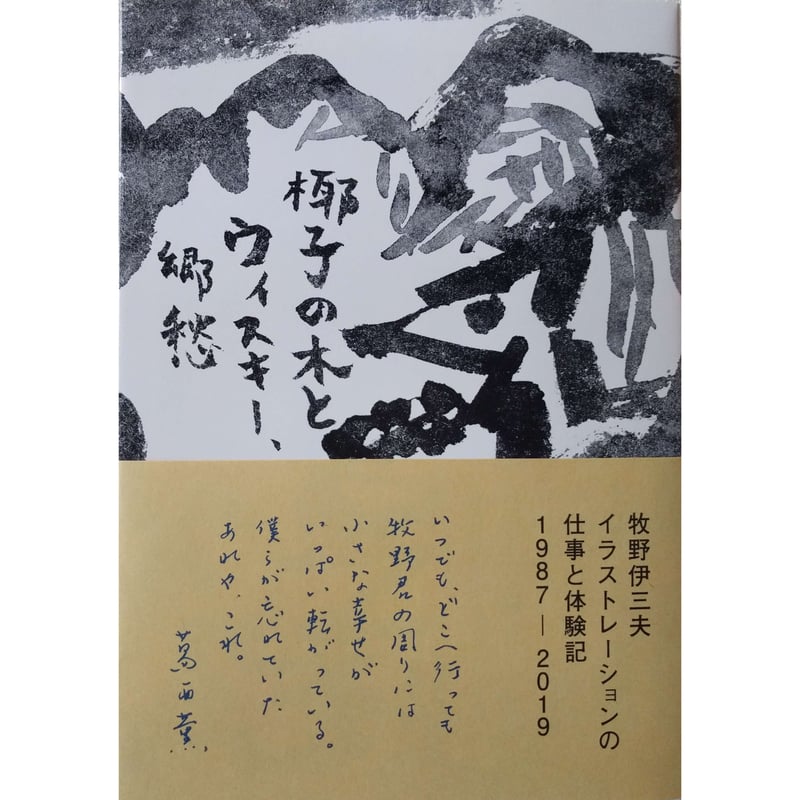 椰子の木と
ウィスキー、
郷愁
牧野伊三夫
イラストレーションの
仕事と体験記
1987―2019
いつでも、どこへ行っても
牧野君の周りには
小さな幸せが
いっぱい転がっている。
僕らが忘れていた
あれや、これ。
葛西薫